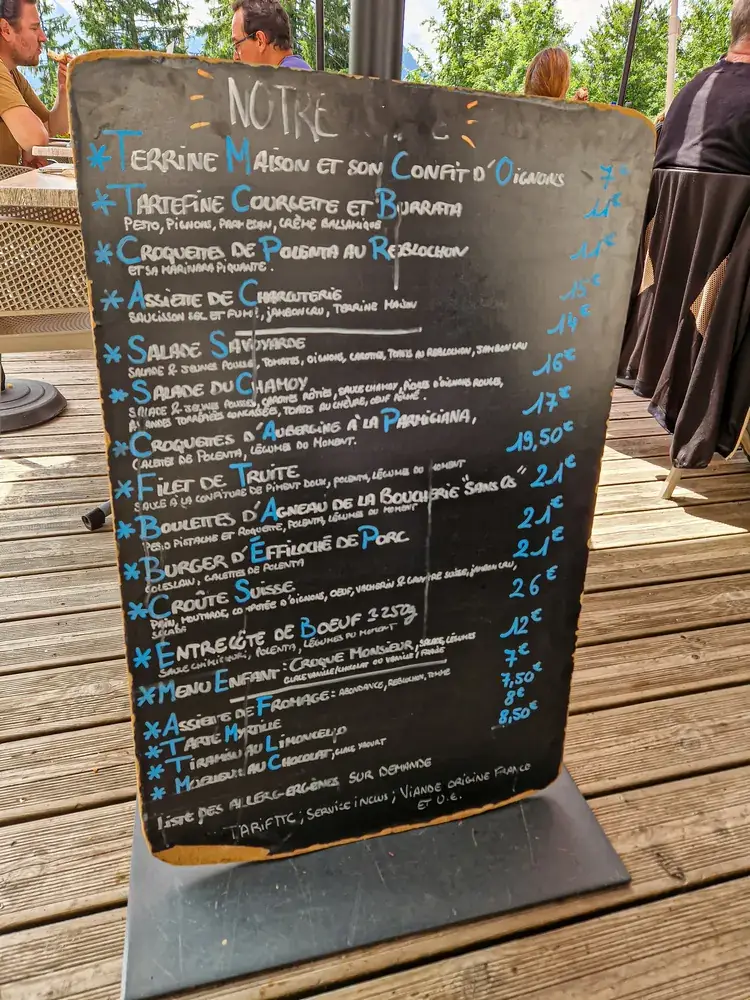 NOTRE
* TERRINE MAISON ET SON CONFIT D'OIGNONS 7€
* TARTEFINE COURGETTE ET BURRATA 11€
PESTO, PIGNONS, PARMESAN, CRÈME BALSAMIQUE
* CROQUETTES DE POLENTA AU REBLOCHON 11€
ET SA MARINARA PIQUANTE.
* ASSIETTE DE CHARCUTERIE 15€
SAUCISSON SEC ET FUMÉ, JAMBON CRU, TERRINE MAISON
* SALADE SAVOYARDE 14€
SALADE & JEUNES POUSSES, TOMATES, OIGNONS, CAROTTES, TOASTS AU REBLOCHON, JAMBON CRU
* SALADE DU CHAMOY 16€
SALADE & JEUNES POUSSES, CAROTTES RÔTIES, SAUCE CHAMOY, PICKLES D'OIGNONS ROUGES,
AMANDES TORRÉFIÉES CONCASSÉES, TOASTS AU CHÈVRE, OEUF POCHÉ.
* CROQUETTES D'AUBERGINE À LA PARMIGIANA, 17€
GALETTES DE POLENTA, LÉGUMES DU MOMENT.
* FILET DE TRUITE 19,50€
SAUCE À LA CONFITURE DE PIMENT DOUX, POLENTA, LÉGUMES DU MOMENT
* BOULETTES D'AGNEAU DE LA BOUCHERIE "SANS OS" 21€
PESTO PISTACHE ET ROQUETTE, POLENTA, LÉGUMES DU MOMENT
* BURGER D'ÉFFILOCHÉ DE PORC 21€
COLESLAW, GALETTES DE POLENTA
* CROÛTE SUISSE 21€
PAIN, MOUTARDE, COMPOTÉE D'OIGNONS, OEUF, VACHERIN & GRUYÈRE SUISSE, JAMBON CRU,
SALADE
* ENTRECÔTE DE BOEUF ± 250g 26€
SAUCE CHIMICHURI, POLENTA, LÉGUMES DU MOMENT
* MENU ENFANT: CROQUE MONSIEUR, SALADE, LÉGUMES 12€
GLACE VANILLE/CHOCOLAT OU VANILLE/FRAISE
* ASSIETTE DE FROMAGE: ABONDANCE, REBLOCHON, TOMME 7€
* TARTE MYRTILLE 7,50€
* TIRAMISU AU LIMONCELLO 8€
* MOELLEUX AU CHOCOLAT, GLACE YAOURT 8,50€
LISTE DES ALLERG-ERGÈNES SUR DEMANDE
TARIF TTC; SERVICE INCLUS; VIANDE ORIGINE FRANCE
ET U.E.